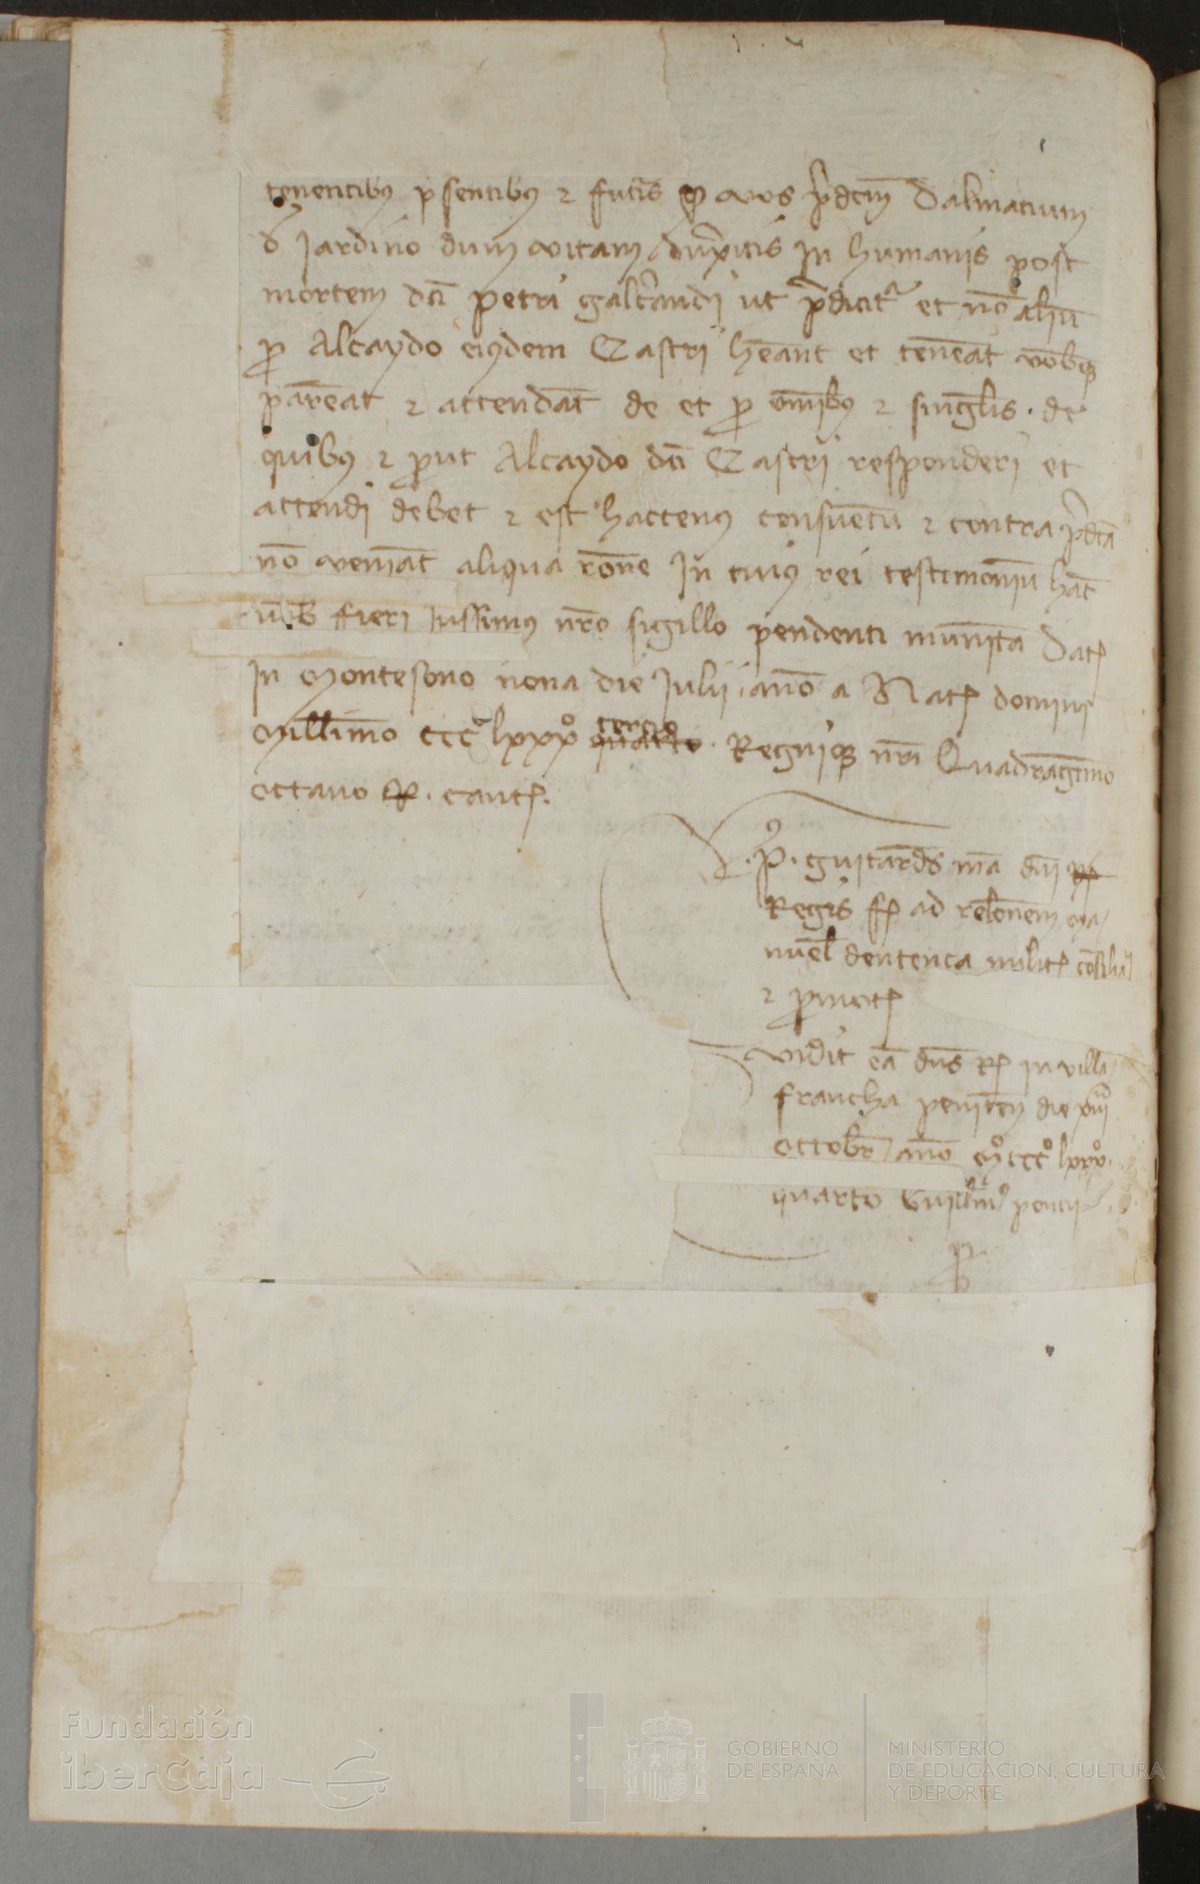 tenentibus presentibus et futuris quod vos predictum Dalmatium
de Jardino dum vitam duxeritis in humanis post
mortem dicti Petri Galcerandi ut predicitur et non alium
pro Alcaydo eiusdem Castri habeant et teneant vobisque
pareant et attendant de et pro omnibus et singulis de
quibus et prout Alcaydo dicti Castri responderi et
attendi debet et est hactenus consuetum et contra predicta
non veniant aliqua racione In cuius rei testimonium hanc
vobis fieri iussimus nostro sigillo pendenti munitam Dat
In Montesono nona die Julii anno a Nat domini
Millimo ccc lxxx tercio quarto Regnique nostri Quadragesimo
octavo R. canc.
P. Guitardi mandato domini
Regis ad relacionem Ma
nuel dentença militis consiliarii
et promotoris
Vidit eam dominus Rex in villa
francha penitensis die xviii
octobris anno Mº cccº lxxxº
quarto Guillelmus poncii
P
Fundación
iberCaja
GOBIERNO
DE ESPAÑA
MINISTERIO
DE EDUCACIÓN, CULTURA
Y DEPORTE